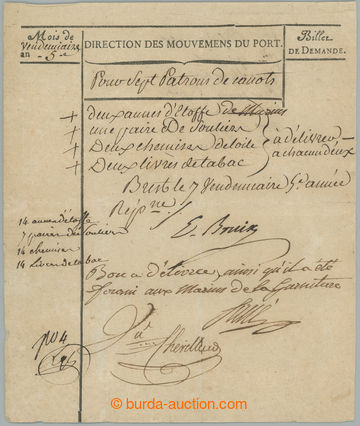 Mois de
Vendemiaire
an 5e
DIRECTION DES MOUVEMENS DU PORT.
Billet
DE DEMANDE.
Pour Sept Patrons de canots
+ deux aunes d'étoffe de Marins
+ une paire De Souliers
+ Deux chemises de toile
+ Deux livres de tabac
à délivrer
à chacun d'eux
Brest le 7 Vendemiaire 5e année
14 aunes d'étoffe
7 paires de Souliers
14 chemises
14 livres de tabac
Bon à délivrer ainsi qu'il a été
fourni aux Marins de la Garniture
no 4
© burda-auction.com